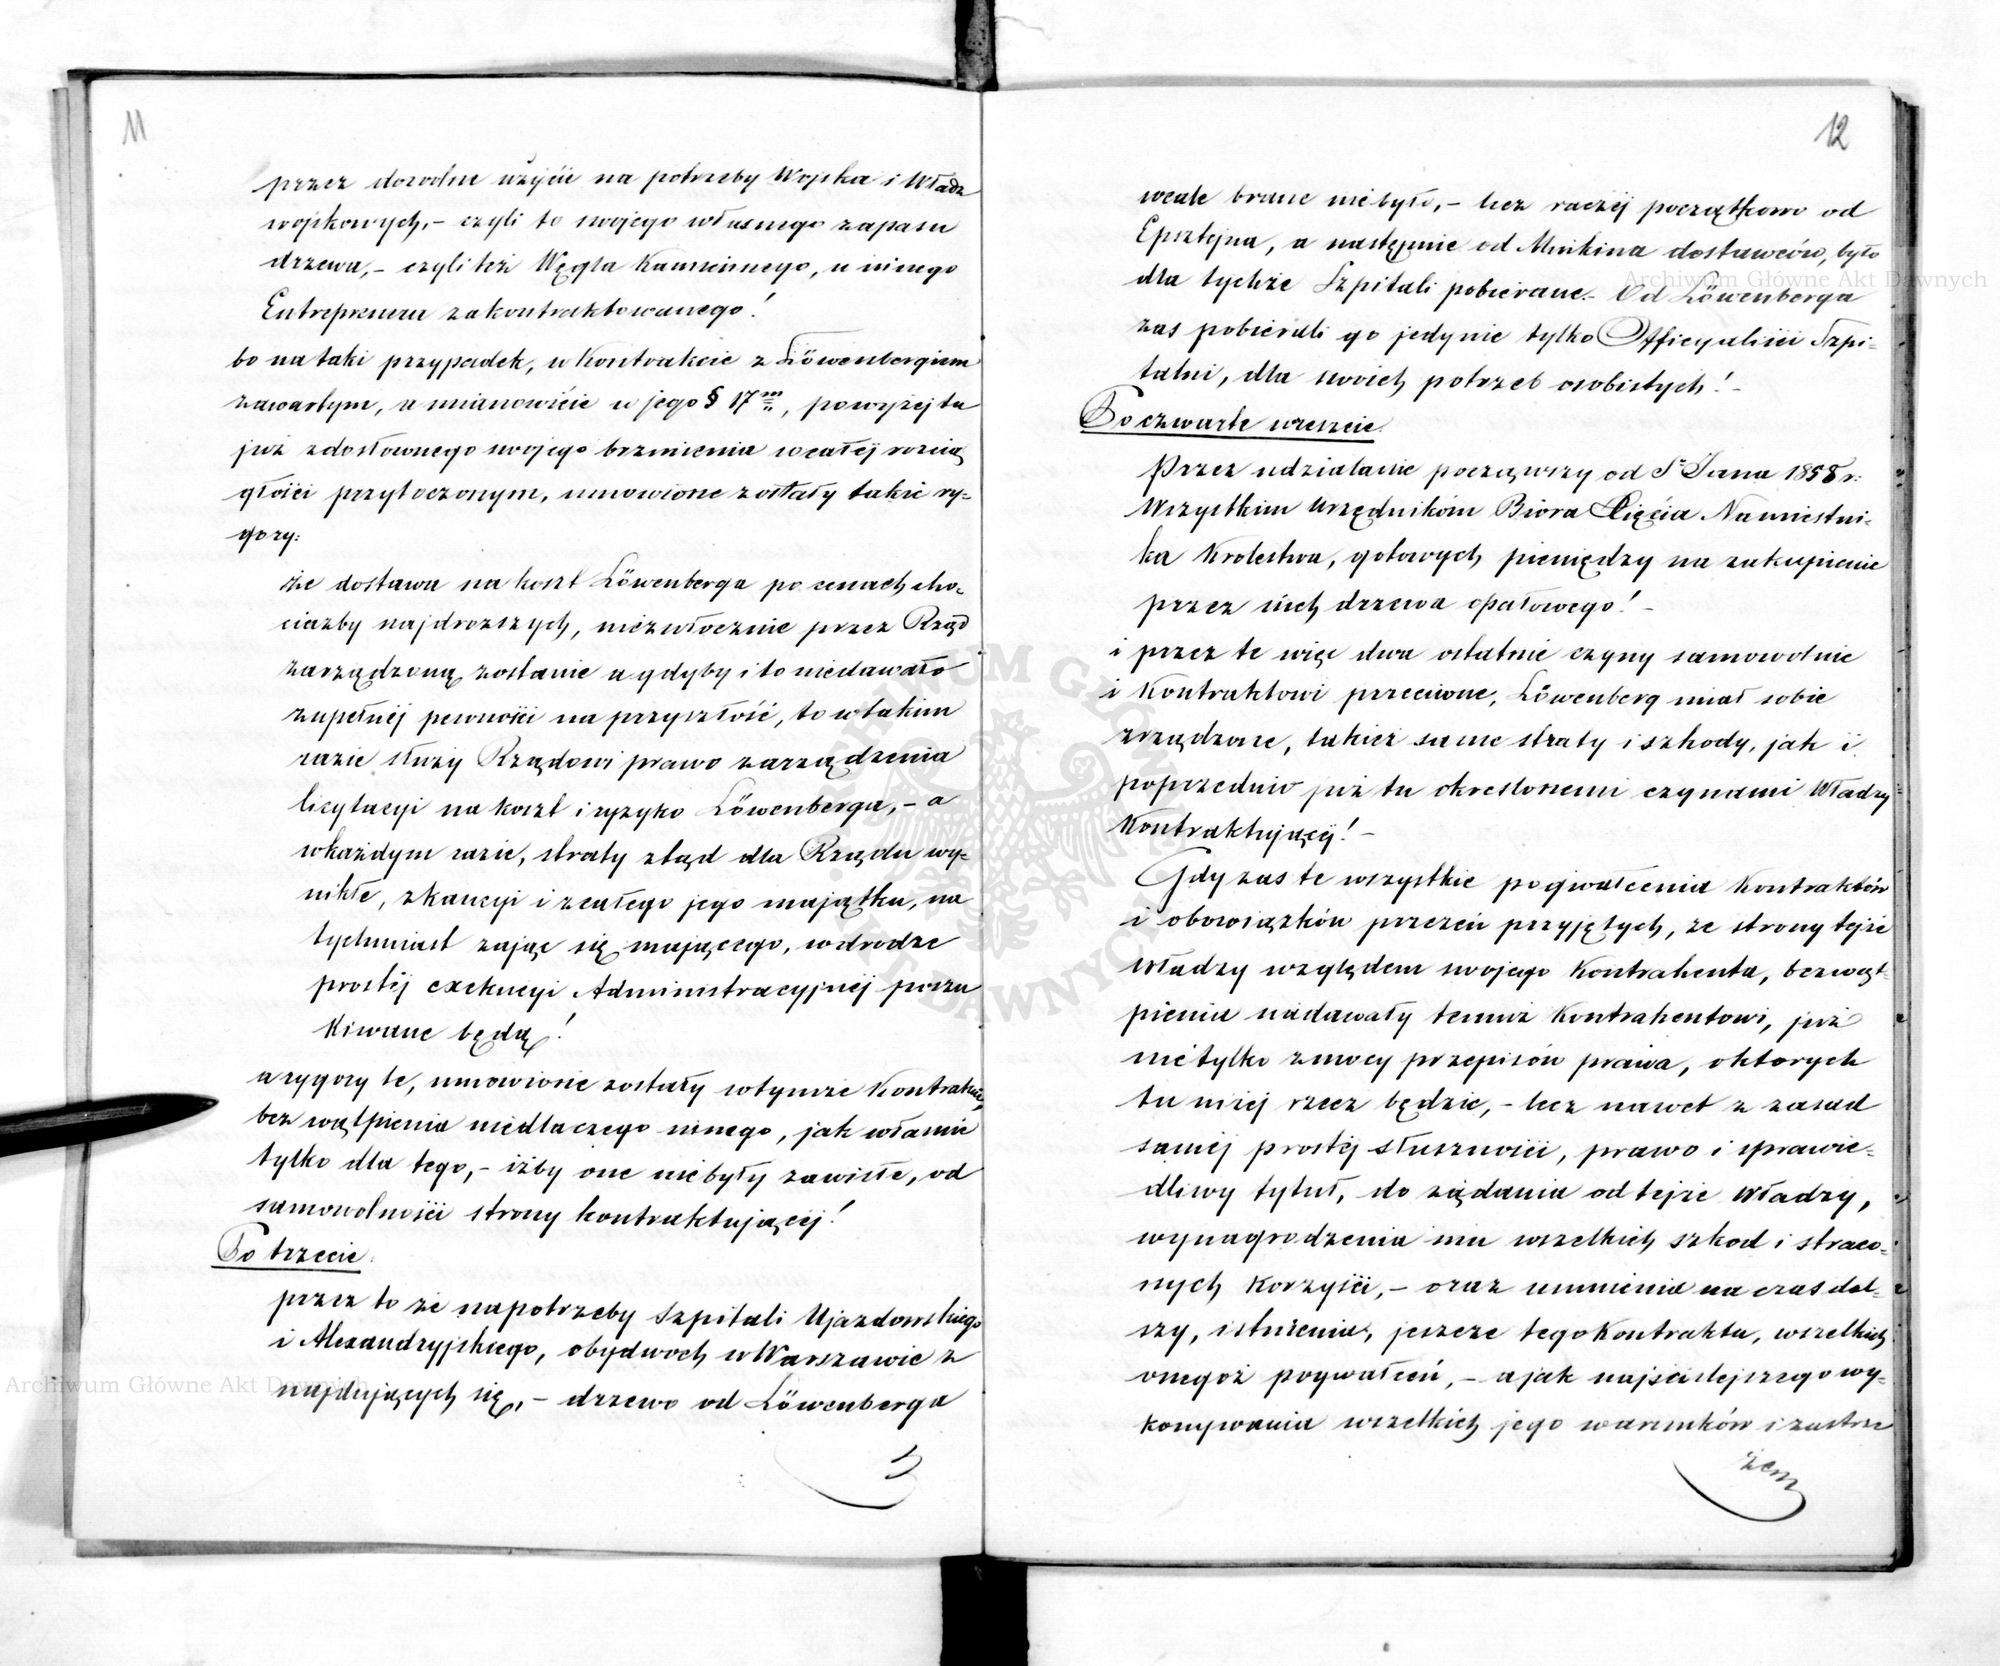 11
przez dozwolne użycie na potrzeby Wojska i Władz
wojskowych,- czyli to swojego własnego zapasu
drzewa,- czyli też Węgla Kamiennego, u innego
Entreprenera zakontraktowanego!
bo na taki przypadek, w Kontrakcie z Löwenbergiem
zawartym, a mianowicie w jego § 17m, powyżej tu
już zdosłownego swojego brzmienia wcałej rozcią
głości przytoczonym, umowione zostały takie ry=
gory:
że dostawa na koszt Löwenberga po cenach cho=
ciażby najdrozszych, niezwłocznie przez Rząd
zarządzoną zostanie a gdyby i to niedawało
zupełnéj pewności na przyszłość, to wtakim
razie służy Rządowi prawo zarządzenia
licytacyi na koszt i ryzyko Löwenberga,- a
wkażdym razie, straty ztąd dla Rządu wy=
nikłe, zkaucyi i zcałego jego majątku, na
tychmiast zająć się mającego, wdrodze
prostéj exekucyi Administracyjnéj poszu
kiwane będą!
a rygory te, umowione zostały wtymże Kontrakcie,
bez wątpienia niedlaczego innego, jak właśnie
tylko dla tego,- iżby one niebyły zawisłe, od
samowolności strony kontraktującéj!
Po trzecie:
przez to że napotrzeby Szpitali Ujazdowskiego
i Alexandryjskiego, obydwoch w Warszawie z
najdujących się,- drzewo od Löwenberga
12
wcale brane niebyło,- lecz raczéj początkowo od
Epsztejna, a następnie od Minkina dostawców, było
dla tychże Szpitali pobierane.- Od Löwenberga
zas pobierali go jedynie tylko Officyaliści Szpi=
talni, dla swoich potrzeb osobistych!-
Po czwarte wreszcie.
Przez udzielanie począwszy od Sgo Jana 1858 r:
Wszystkim urzędnikóm Biora Xięcia Namiestni=
ka Krolestwa, gotowych pieniędzy na zakupienie
przez nich drzewa opałowego!-
i przez te więc dwa ostatnie czyny samowolnie
i Kontraktowi przeciwne, Löwenberg miał sobie
zrządzone, takież same straty i szkody, jak i
poprzednio już tu okreslonemi czynami Władzy
Kontraktującéj!-
Gdy zas te wszystkie pogwałcenia Kontraktów
i obowiązków przezeń przyjętych, ze strony tejże
Władzy względem swojego Kontrahenta, bezwąt=
pienia nadawały temuż Kontrahentowi, już
nietylko zmocy przepisów prawa, oktorych
tu niżej rzecz będzie,- lecz nawet z zasad
saméj prostéj słuszności, prawo i sprawie=
dliwy tytuł, do żądania od tejże Władzy,
wynagrodzenia mu wszelkich szkod i straco=
nych Korzyści,- oraz unnienia na czas dal=
szy, istnienia, jeszcze tego Kontraktu, wszelkich
onegoż pogwałceń,- a jak najściślejszego wy=
konywania wszelkich jego warunków i zastrze
żeń
Archiwum Główne Akt Dawnych
Archiwum Główne Akt Dawnych
ARCHIWUM GŁÓWNE AKT DAWNYCH